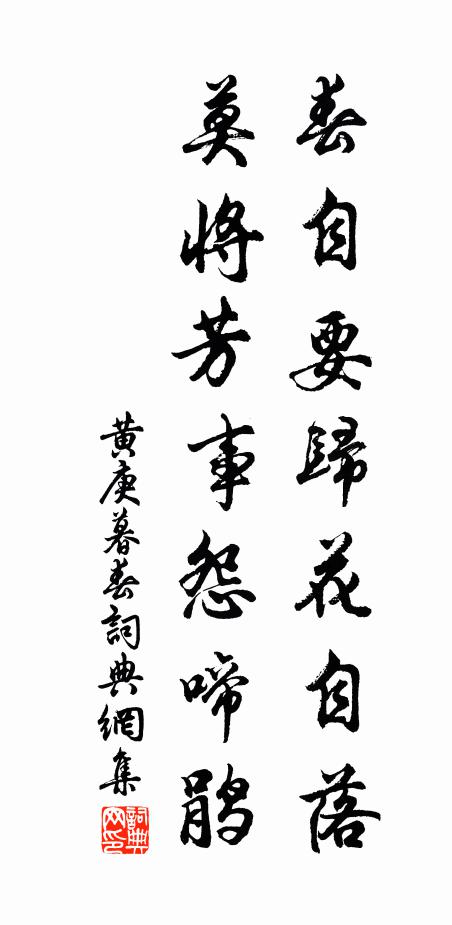 春自要歸花自落
莫將芳事怨啼鵑
黃庚暮春詞典網集
詞典网印